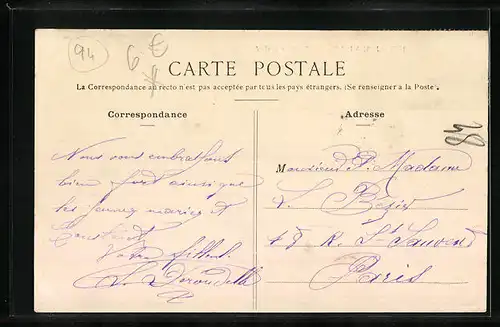 94
6 €
CARTE POSTALE
La Correspondance au recto n'est pas acceptée par tous les pays étrangers. (Se renseigner à la Poste).
Correspondance
Adresse
84
Nous vous embrassons
bien fort ainsi que
les jeunes mariés et
Votre filleul
L. Deroudelle
Monsieur & Madame
L.
48 R. St Sauveur
Paris